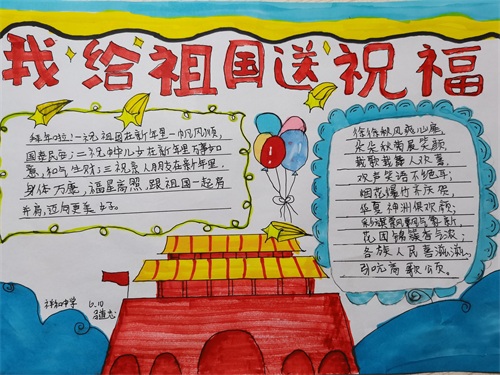 我给祖国送祝福
拜年啦!一祝祖国在新年里一帆风顺,
国泰民安;二祝中华儿女在新年里万事如
意,和气生财;三祝亲人朋友在新年里,
身体万康,福星高照,跟祖国一起肩
并肩,迈向更美
徐徐秋风爽心扉,
朵朵秋菊展笑颜,
我歌我舞人欢喜,
欢声笑语不绝耳;
烟花爆竹不厌祭,
华夏神洲俱欢颜;
彩旗飘飘
花团锦簇香气浓;
各族人民喜滋滋,
引吭高歌
祥和中学
6.10